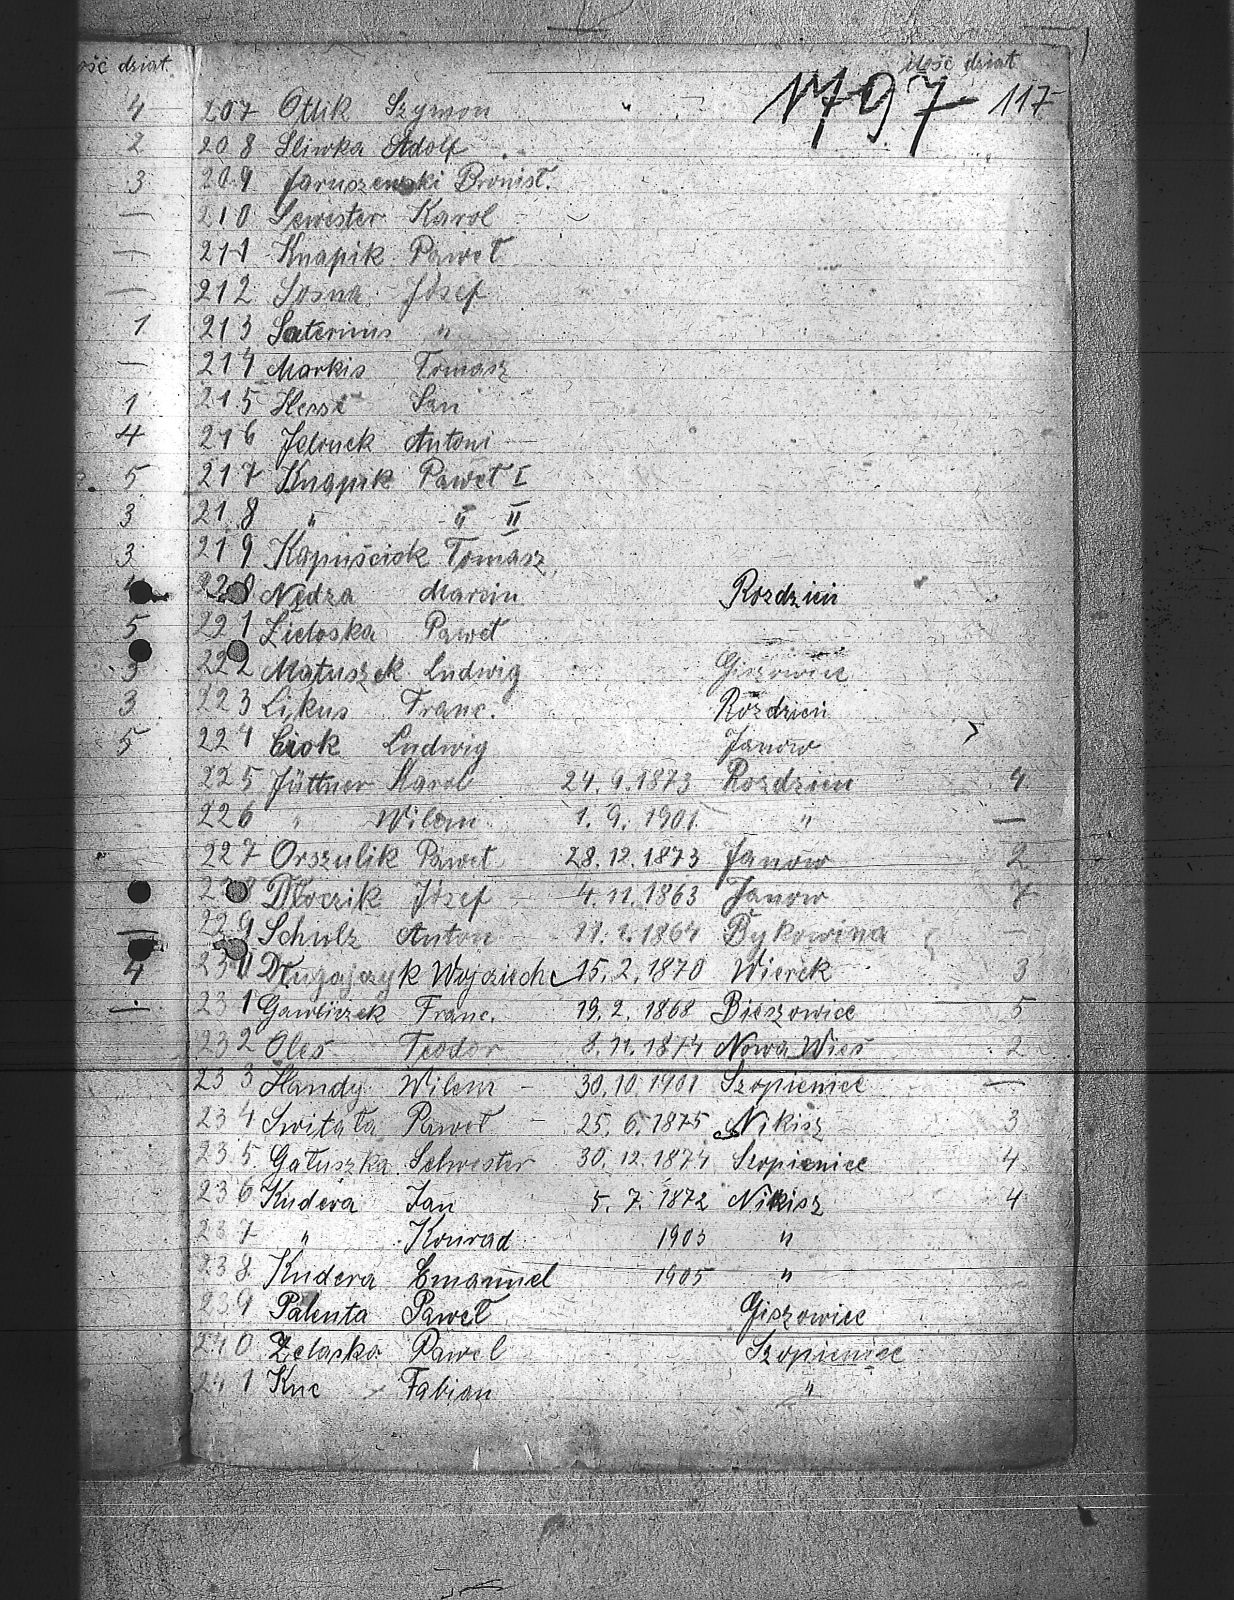 ość dziat. ilość dziat
1797 117
4 207 Otlik Szymon
2 208 Sliwka Adolf
3 209 Jaruszewski Bronisł.
— 210 Sewester Karol
— 211 Knapik Paweł
— 212 Sosna Józef
1 213 Saternus "
— 214 Markis Tomasz
1 215 Jan
4 216 Antoni
5 217 Knapik Paweł I
3 218 " " II
3 219 Kapuściok Tomasz
220 Nędza Marcin Rozdzień
5 221 Paweł
3 222 Matuszek Ludwig Giszowiec
3 223 Likus Franc. Rozdzień
5 224 Ciok Ludwig Janów
225 Jüttner Karol 24.9.1873 Rozdzien 4
226 " Wilem 1.9.1901 " —
227 Orszulik Paweł 28.12.1873 Janow 2
228 Dłoczik Józef 4.11.1863 Janow 7
— 229 Schulz Anton 11.1.1864 Bykowina —
4 230 Wojciech 15.2.1870 Wierek 3
— 231 Gawliczek Franc. 19.2.1868 Bieszowice 5
232 Oleś Teodor 8.11.1874 Nowa Wieś 2
233 Handy Wilem 30.10.1901 Szopieniec —
234 Switała Paweł 25.6.1875 Nikisz 3
235 Gałuszka Selwester 30.12.1874 Szopieniec 4
236 Kudera Jan 5.7.1872 Nikisz 4
237 " Konrad 1903 "
238 Kudera Emanuel 1905 "
239 Palenta Paweł Giszowiec
240 Żelasko Pawel Szopieniec
241 Kuc Fabian "